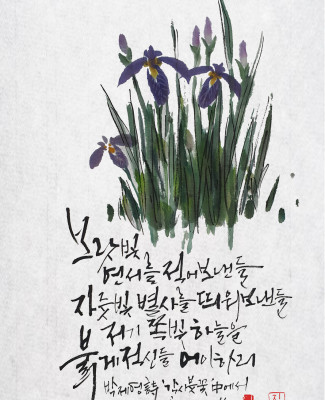 보랏빛
연서를 적어보낸들
자줏빛 별사를 띄워보낸들
저기 쪽빛 하늘을
붉게 적신들 어이하리
박제영 詩 '각시붓꽃' 中에서